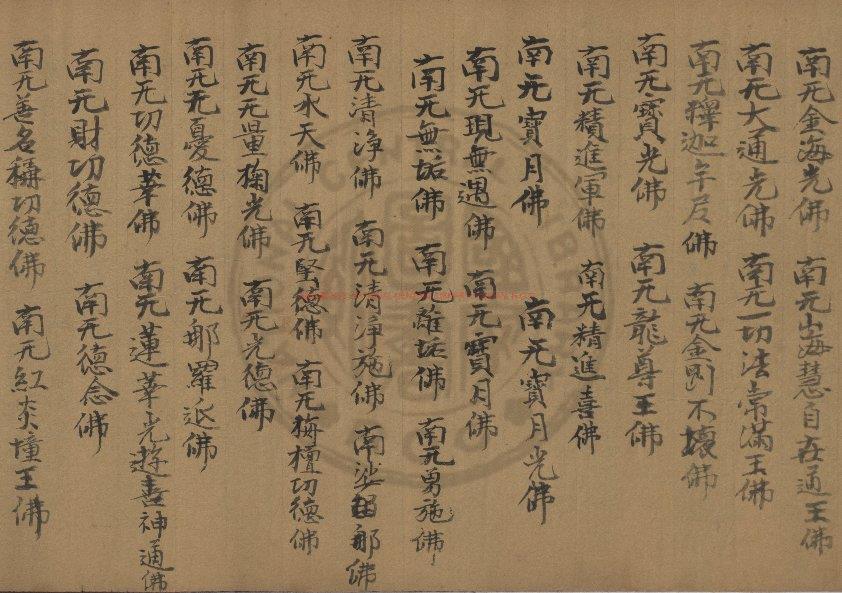 南无金海光佛 南无山海慧自在通王佛
南无大通光佛 南无一切法常滿王佛
南无釋迦牟尼佛 南无金剛不壞佛
南无寶光佛 南无龍尊王佛
南无精進軍佛 南无精進喜佛
南无寶月佛 南无寶月光佛
南无現無遇佛 南无寶月佛
南无無垢佛 南无離垢佛 南无勇施佛
南无清淨佛 南无清淨施佛 南娑留那佛
南无水天佛 南无堅德佛 南无栴檀切德佛
南无无量掬光佛 南无光德佛
南无无憂德佛 南无那羅延佛
南无切德華佛 南无蓮華光遊喜神通佛
南无財切德佛 南无德念佛
南无善名稱切德佛 南无紅炎幢王佛